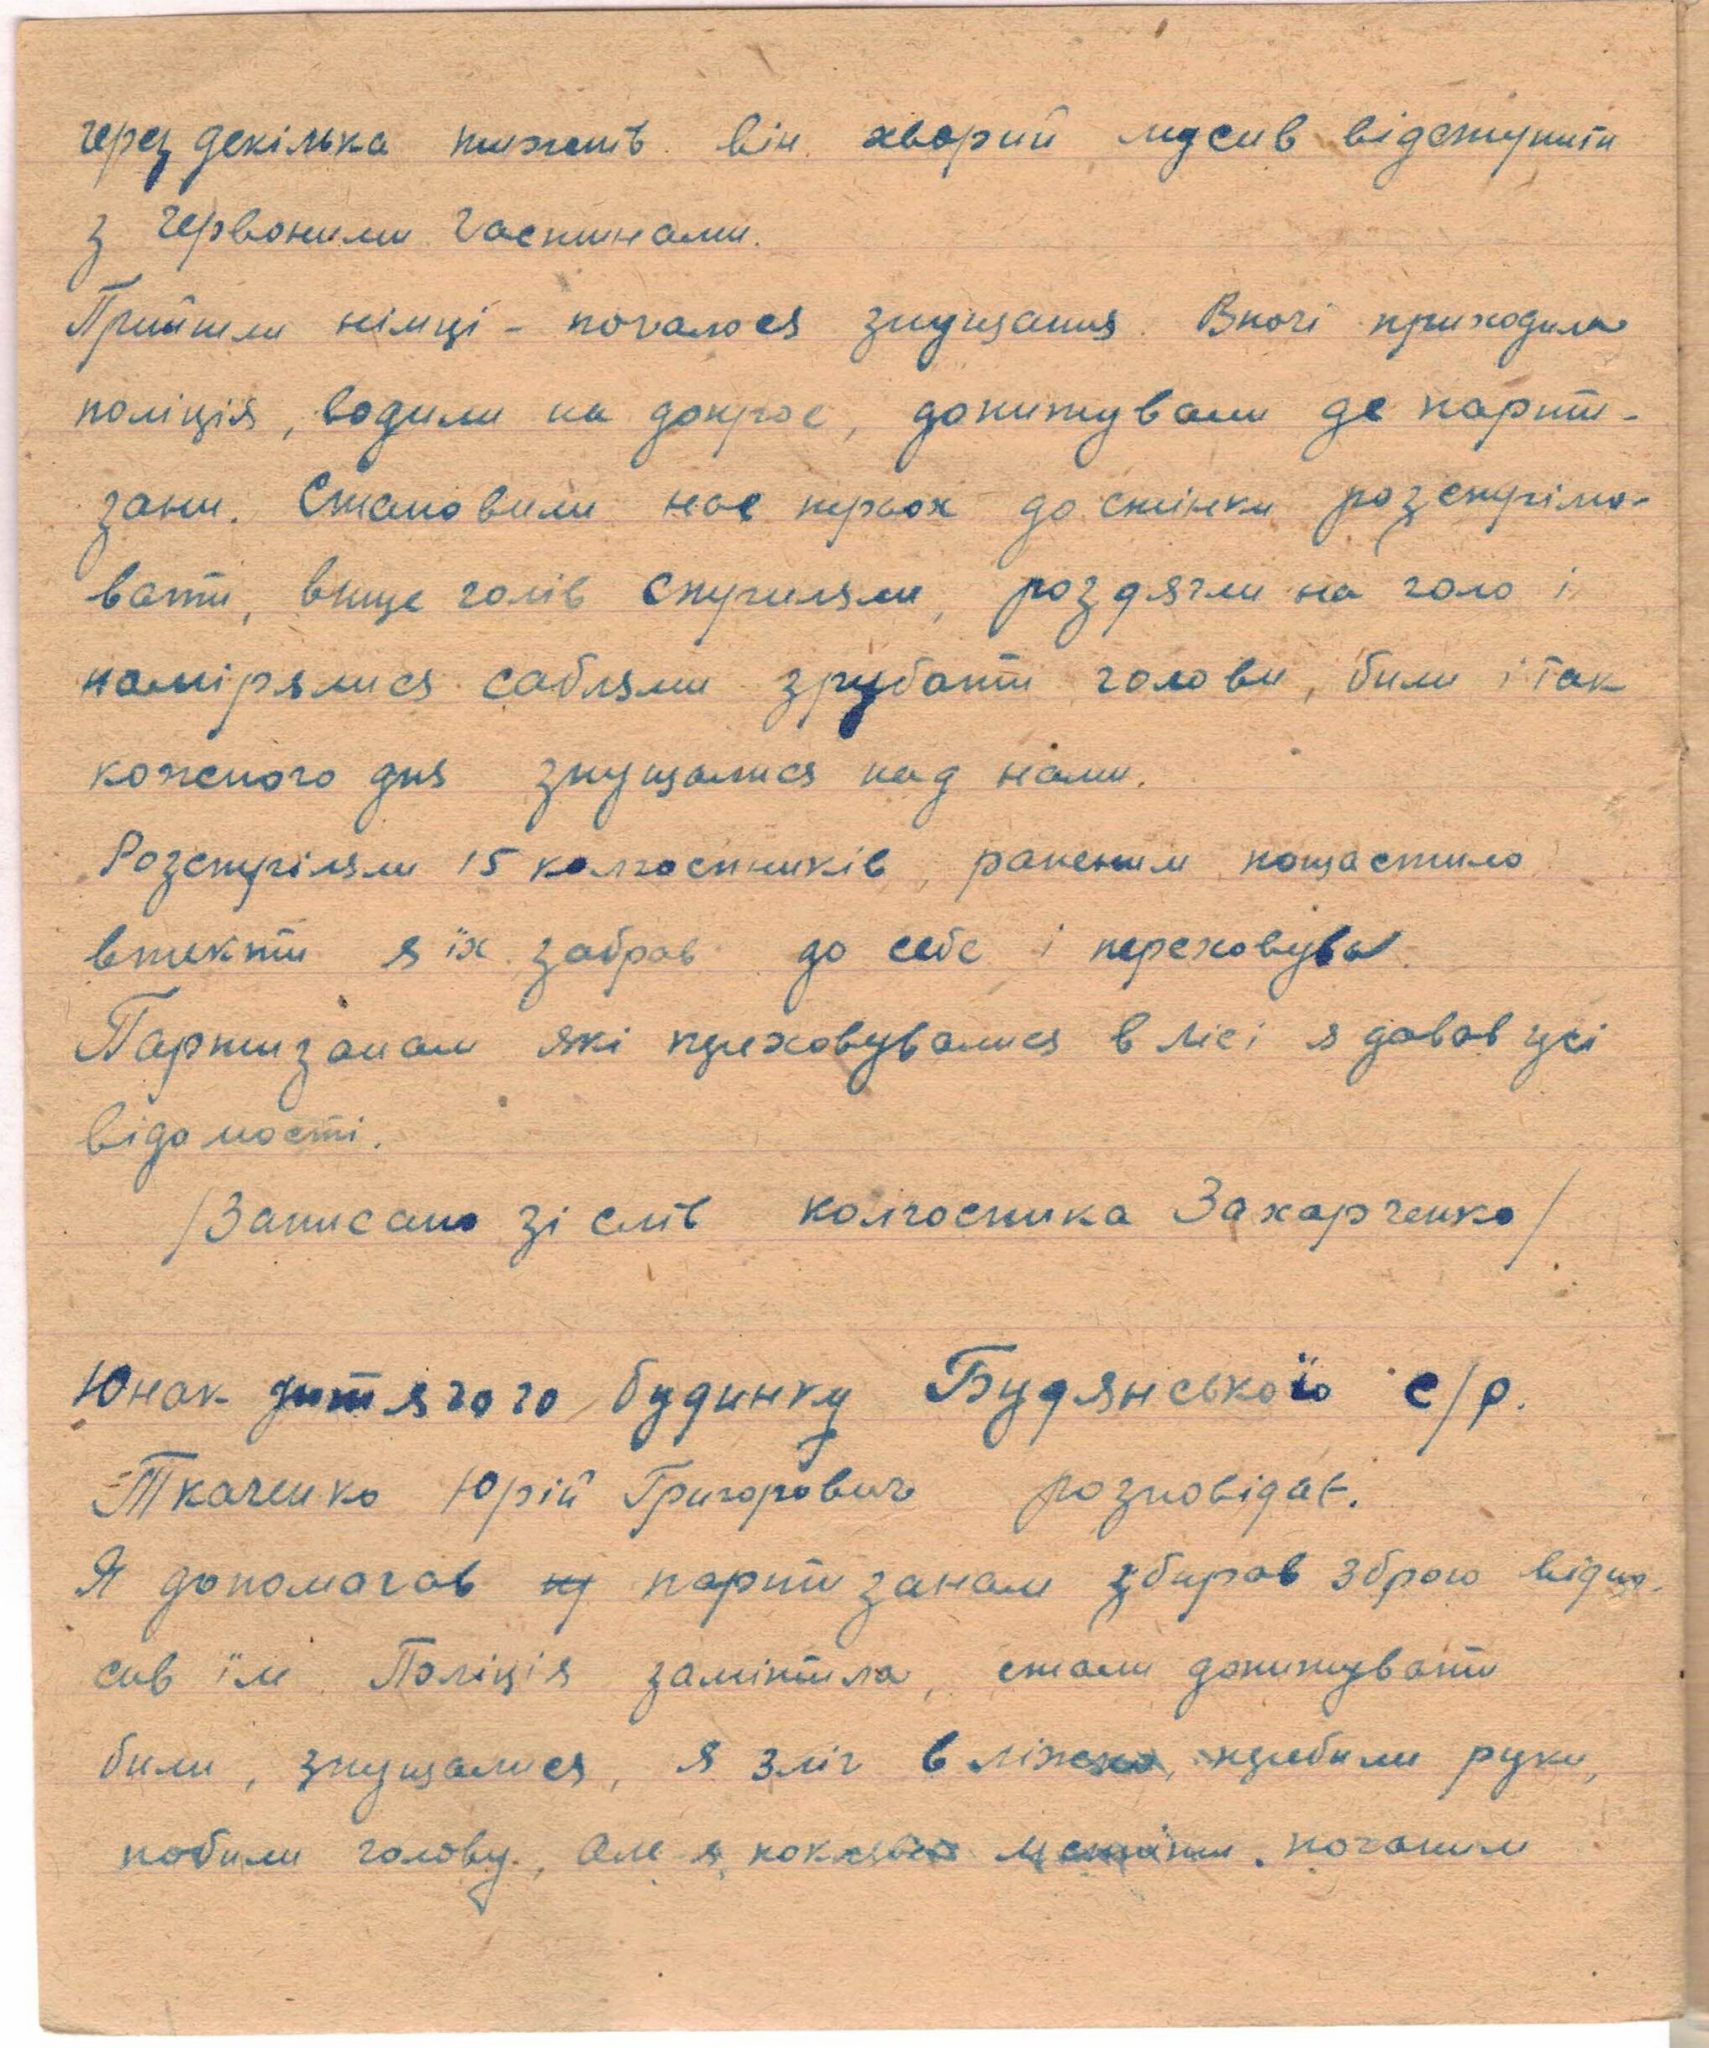 через декілька тижнів він хворий мусив відступити
з червоними частинами.
Прийшли німці - почалося знущання. Вночі приходила
поліція, водили на допрос, допитували де парти-
зани. Становили нас трьох до стінки розстріля-
вати, вище голів стриляли, роздягли на голо і
намірялися саблями зрубати голови, били і так
кожного дня знущалися над нами.
Розстріляли 15 колгоспників, раненим пощастило
втекти я їх забрав до себе і переховував
Партизанам які переховувалися в лісі я давав усі
відомості.
/Записано зі слів колгоспника Захарченко/
Юнак дитячого будинку Будянської с/р.
Ткаченко Юрій Григорович розповідає.
Я допомагав партизанам збирав зброю відно-
сив їм Поліція замітила, стали допитувати
били, знущалися, я зліг в ліжко, перебили руки,
побили голову, але я поклявся мстити. поганим